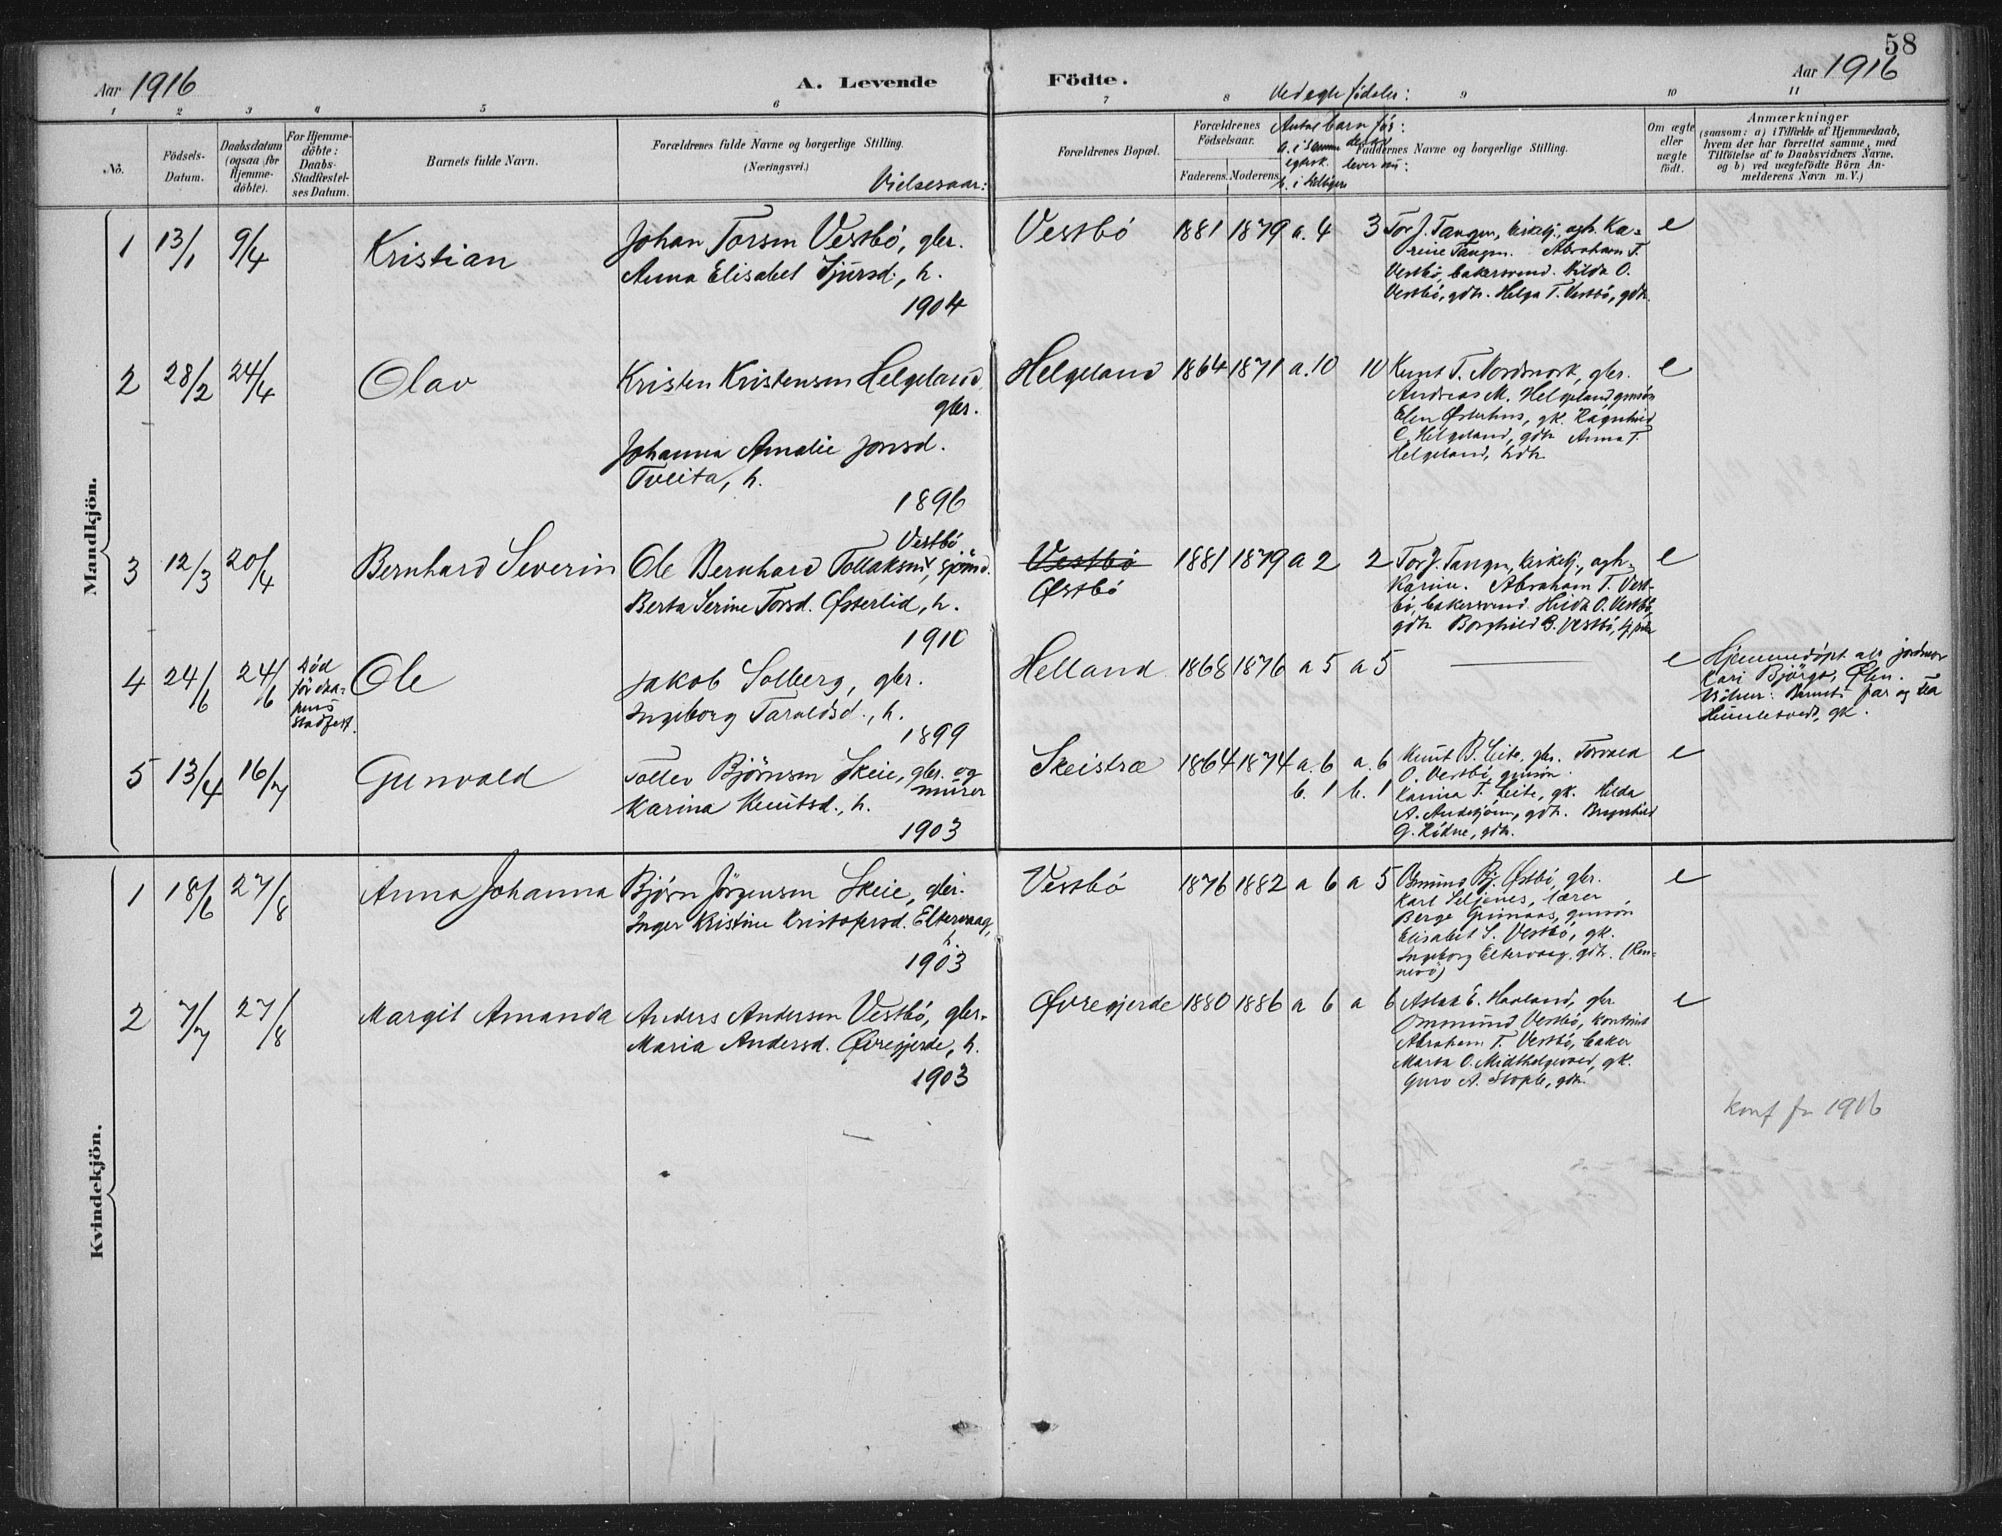 58
Aar 1916
A. Levende Födte.
Ved ægte fødsler:
Aar 1916
1 2 3 4 5 6 7 8 9 10 11
No.
Födsels-
Datum.
Daabsdatum
(ogsaa for
Hjemme-
döbte).
For Hjemme-
döbte:
Daabs-
Stadfæstel-
ses Datum.
Barnets fulde Navn.
Forældrenes fulde Navne og borgerlige Stilling.
(Næringsvei.)
Vielsesaar:
Forældrenes Bopæl.
Forældrenes
Födselsaar.
Faderens. Moderens.
Antal barn før:
a. i samme
egtesk.
b. i tidligere
derav
lever nu:
Faddernes Navne og borgerlige Stilling.
Om ægte
eller
uægte
födt.
Anmærkninger
(saasom: a) i Tilfælde af Hjemmedaab,
hvem der har forrettet samme, med
Tilföielse af to Daabsvidners Navne,
og b) ved uægtefödte Börn An-
melderens Navn m. V.)
Mandkjön.
1 13/1 9/4 Kristian
Johan Torsen Vestbö, gbr.
Anna Elisabet Sjursd., h.
1904
Vestbö 1881 1879 a. 4 3
Tor J. Tangen, kirkesj., og h. Ka-
rine Tangen. Abraham T.
Vestbö, bakersvend. Hilda O.
Vestbö, gdtr. Helga T. Vestbö, gdtr.
e
2 28/2 24/4 Olav
Kristen Kristensen Helgeland,
gbr.
Johanna Amalie Jonsd.
Tveita, h.
1896
Helgeland 1864 1871 a. 10 10
Knut T. Nordsnork, gbr.
Andreas M. Helgeland, gmsøn
Elen Østerhus, gk. Ragnhild
Helgeland, gdtr Anna T.
Helgeland, hdtr.
e
3 12/3 20/4 Bernhard Severin
Vestbö
Ole Bernhard Tollaksen, sjömd.
Berta Serine Torsd. Østerlid, h.
1910
Vestbö
Østbö
1881 1879 a 2 2
Tor J. Tangen, kirkesj., og h.
Karine. Abraham T. Vest-
bö, bakersvend. Hilda O. Vestbö,
gdtr Borghild B. Vestbö,
e
4 24/6 24/6
Død
för daa-
pens
stadfest.
Ole
Jakob Solberg, gbr.
Ingeborg Taraldsd., h.
1899
Helland 1868 1876 a 5 a 5
e
Hjemmedöpt av jordmor
Kari Björge, Ölen.
Vidner: Barnets far og Lea
Humlesvedt, gk.
5 13/4 16/7 Gunvald
Tollev Bjørnsen Skeie, gbr. og
murer
Karina Knutsd., h.
1903
Skeistræ 1864 1874 a. 6 a. 6
b. 1 b. 1
Knut B. Leite, gbr. Torvald
O. Vestbö, gmsön.
Karina T. Leite, gk. Hilda
A. gdtr.
G. Rödne, gdtr.
e
Kvindekjön.
1 18/6 27/8 Anna Johanna
Bjørn Jörgensen Skeie, gbr.
Inger Kristine Kristofersd. Eltervaag,
h.
1903
Vestbö 1876 1882 a 6 a 5
Omund Bj. Østbö, gbr.
Karl Seljenes, lærer
Berge Grimaas, gmsön
Elisabet S. Vestbö, gk.
Ingeborg Eltervaag, gdtr. (Ren-
nesö)
e
2 7/7 27/8 Margit Amanda
Anders Andersen Vestbö, gbr.
Maria Andersd. Øvregjerde, h.
1903
Øvregjerde 1880 1886 a 6 a 6
Aslak E. Haaland, gbr
Ommund Vestbö, kontorist
Abraham T. Vestbö, baker
Marta O. Midthelgevold, gk.
Guro A. Stople, gdtr.
e
konf fr 1916